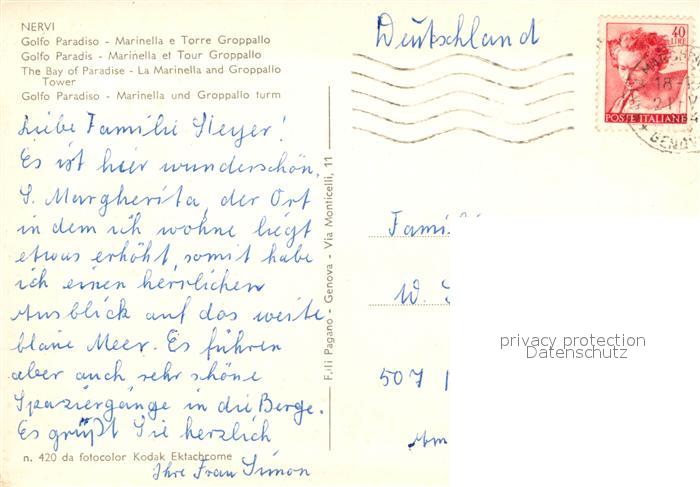 NERVI
Golfo Paradiso - Marinella e Torre Groppallo
Golfo Paradis - Marinella et Tour Groppallo
The Bay of Paradise - La Marinella and Groppallo
Tower
Golfo Paradiso - Marinella und Groppallo turm
Liebe Familie Steyer!
Es ist hier wunderschön.
S. Margherita, der Ort
in dem ich wohne liegt
etwas erhöht, somit habe
ich einen herrlichen
Ausblick auf das weite
blaue Meer. Es führen
aber auch sehr schöne
Spaziergänge in die Berge.
Es grüßt Sie herzlich
Ihre Frau Simon
n. 420 da fotocolor Kodak Ektachrome
F.lli Pagano - Genova - Via Monticelli, 11
Deutschland
40
LIRE
POSTE ITALIANE
GENOV
Fami
W.
507
privacy protection
Datenschutz